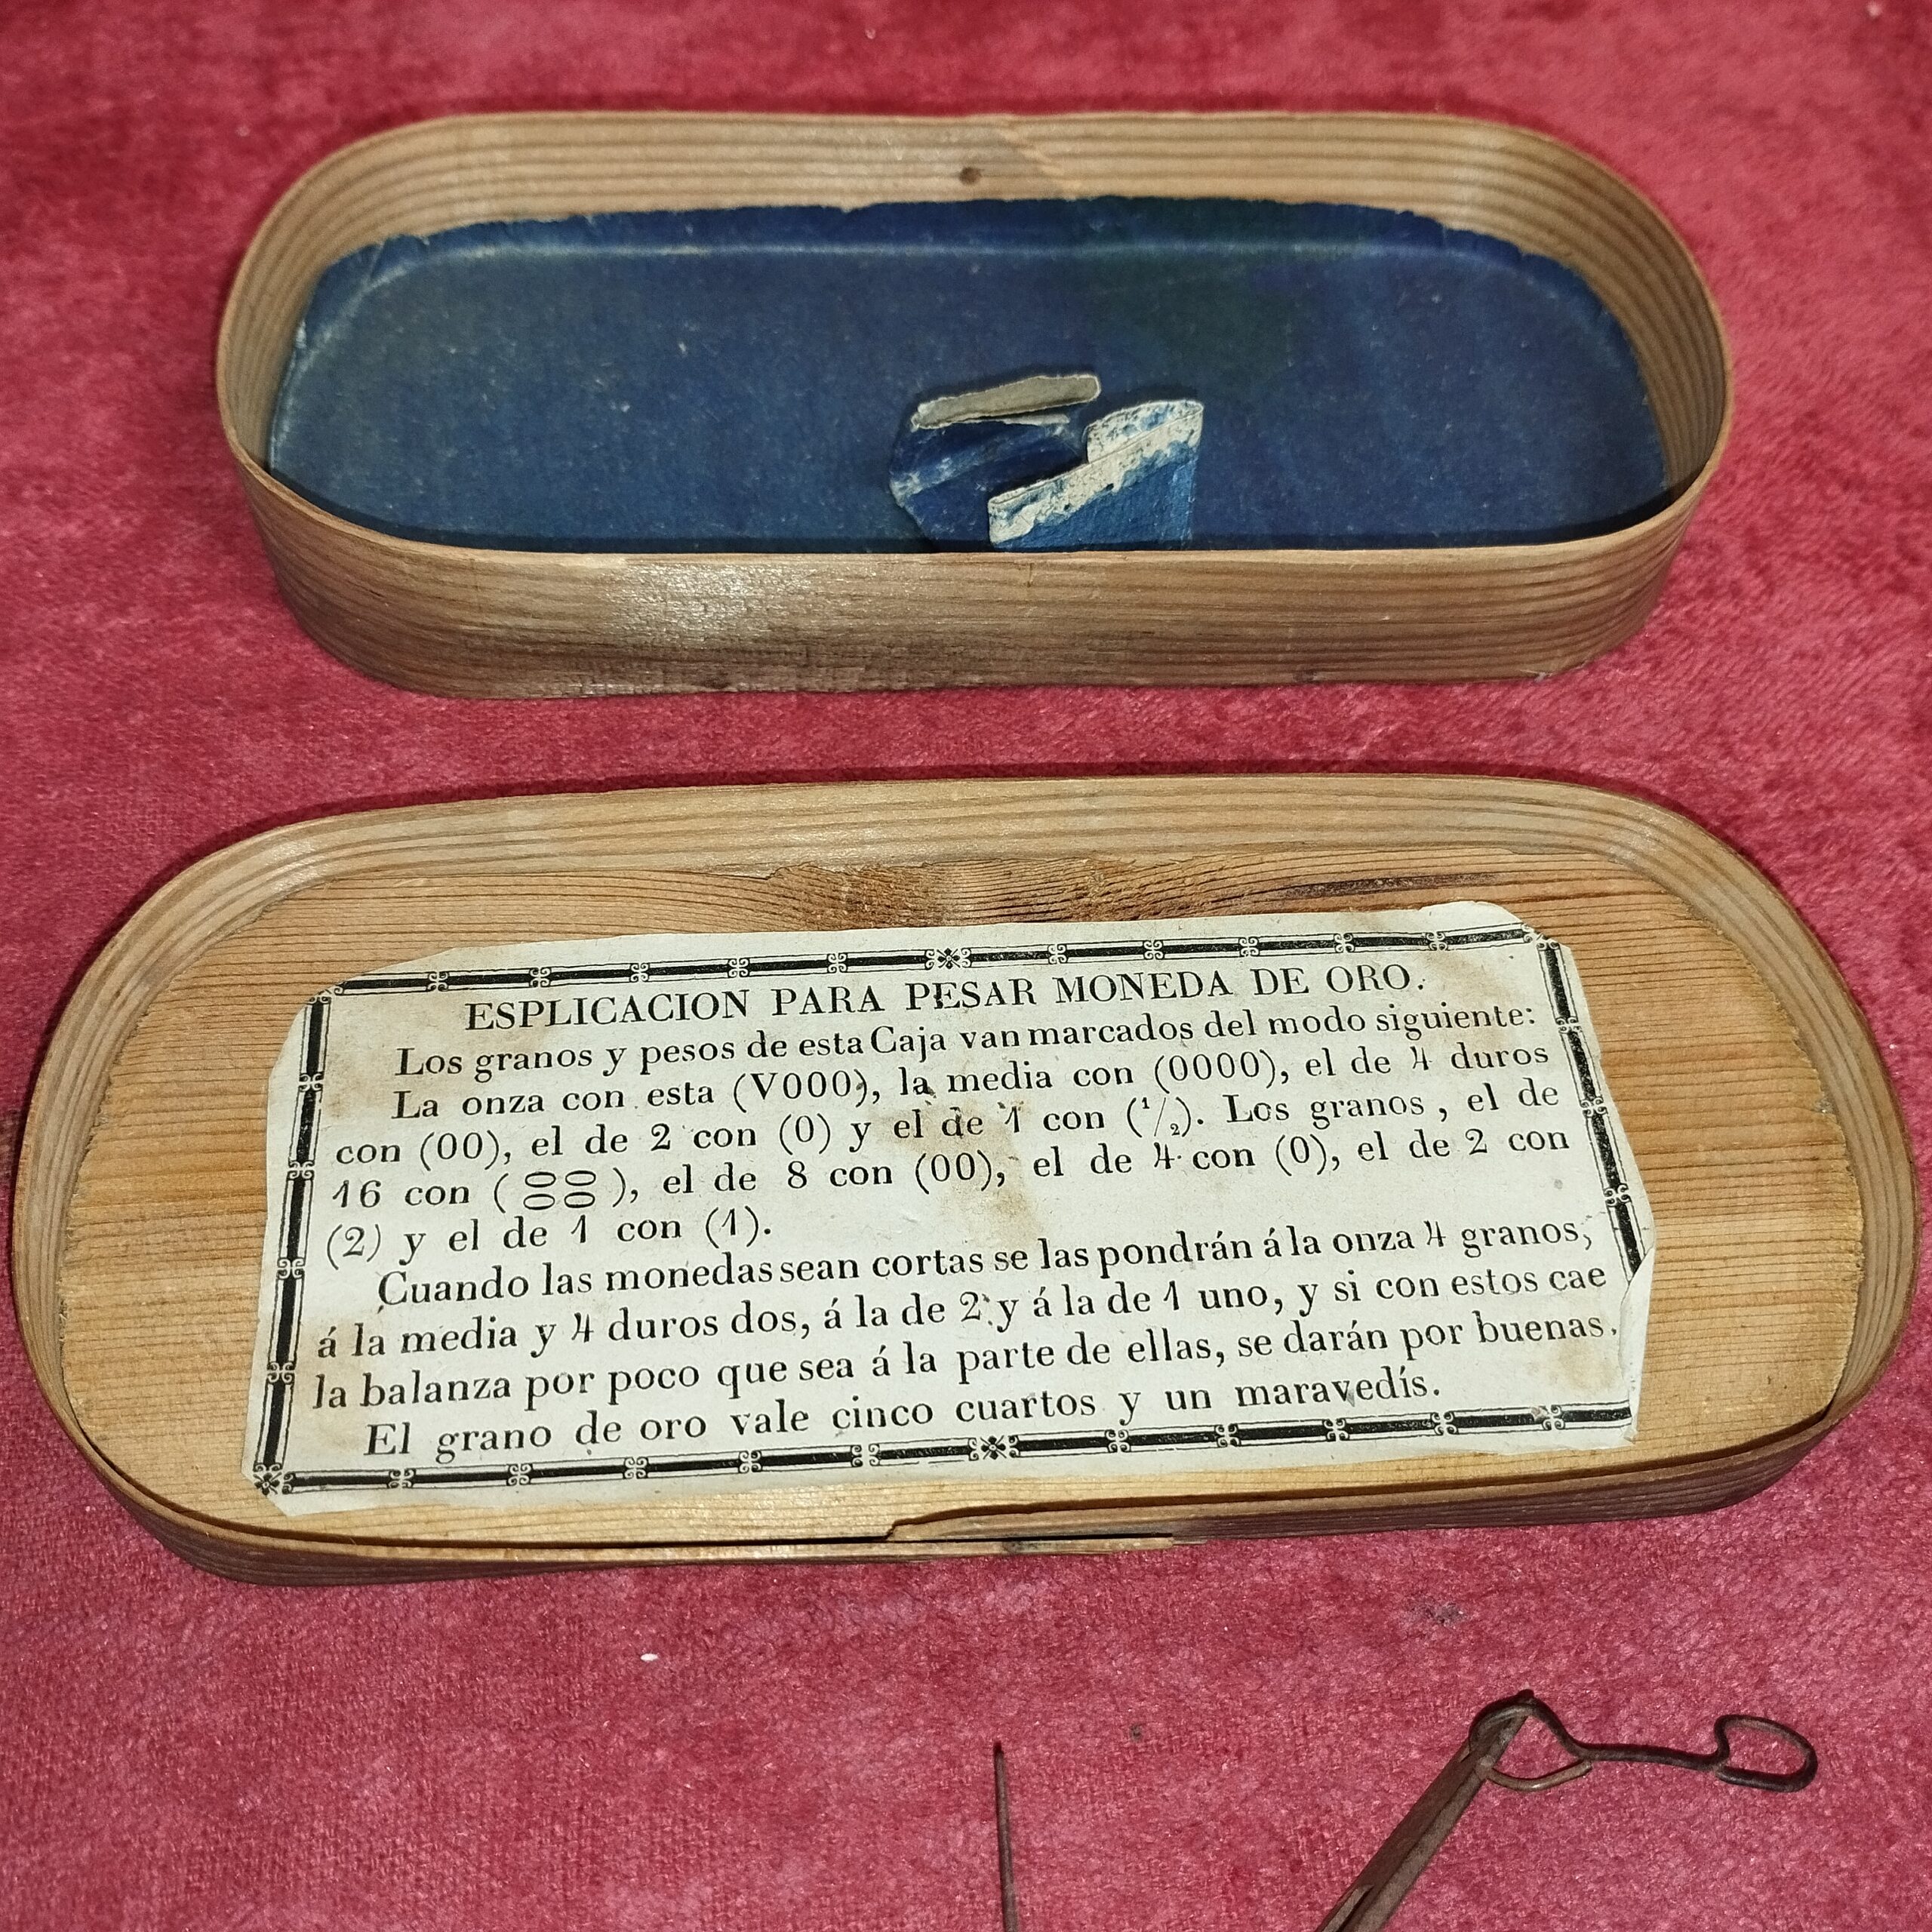 ESPLICACION PARA PESAR MONEDA DE ORO.
Los granos y pesos de esta Caja van marcados del modo siguiente:
La onza con esta (V000), la media con (0000), el de 4 duros
con (00), el de 2 con (0) y el de 1 con (1/2). Los granos, el de
16 con (0000), el de 8 con (00), el de 4 con (0), el de 2 con
(2) y el de 1 con (1).
Cuando las monedas sean cortas se las pondrán á la onza 4 granos,
á la media y 4 duros dos, á la de 2 y á la de 1 uno, y si con estos cae
la balanza por poco que sea á la parte de ellas, se darán por buenas.
El grano de oro vale cinco cuartos y un maravedís.